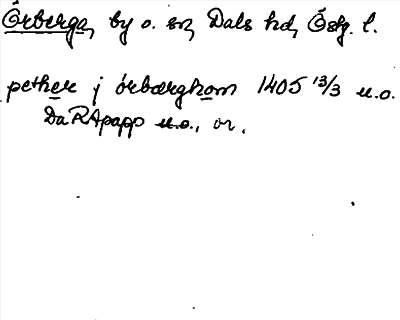 Örberga, by o. sn, Dals hd, Östg. l.
pether j örbærghom 1405 13/3 u.o.
DaRApapp u.o., or.